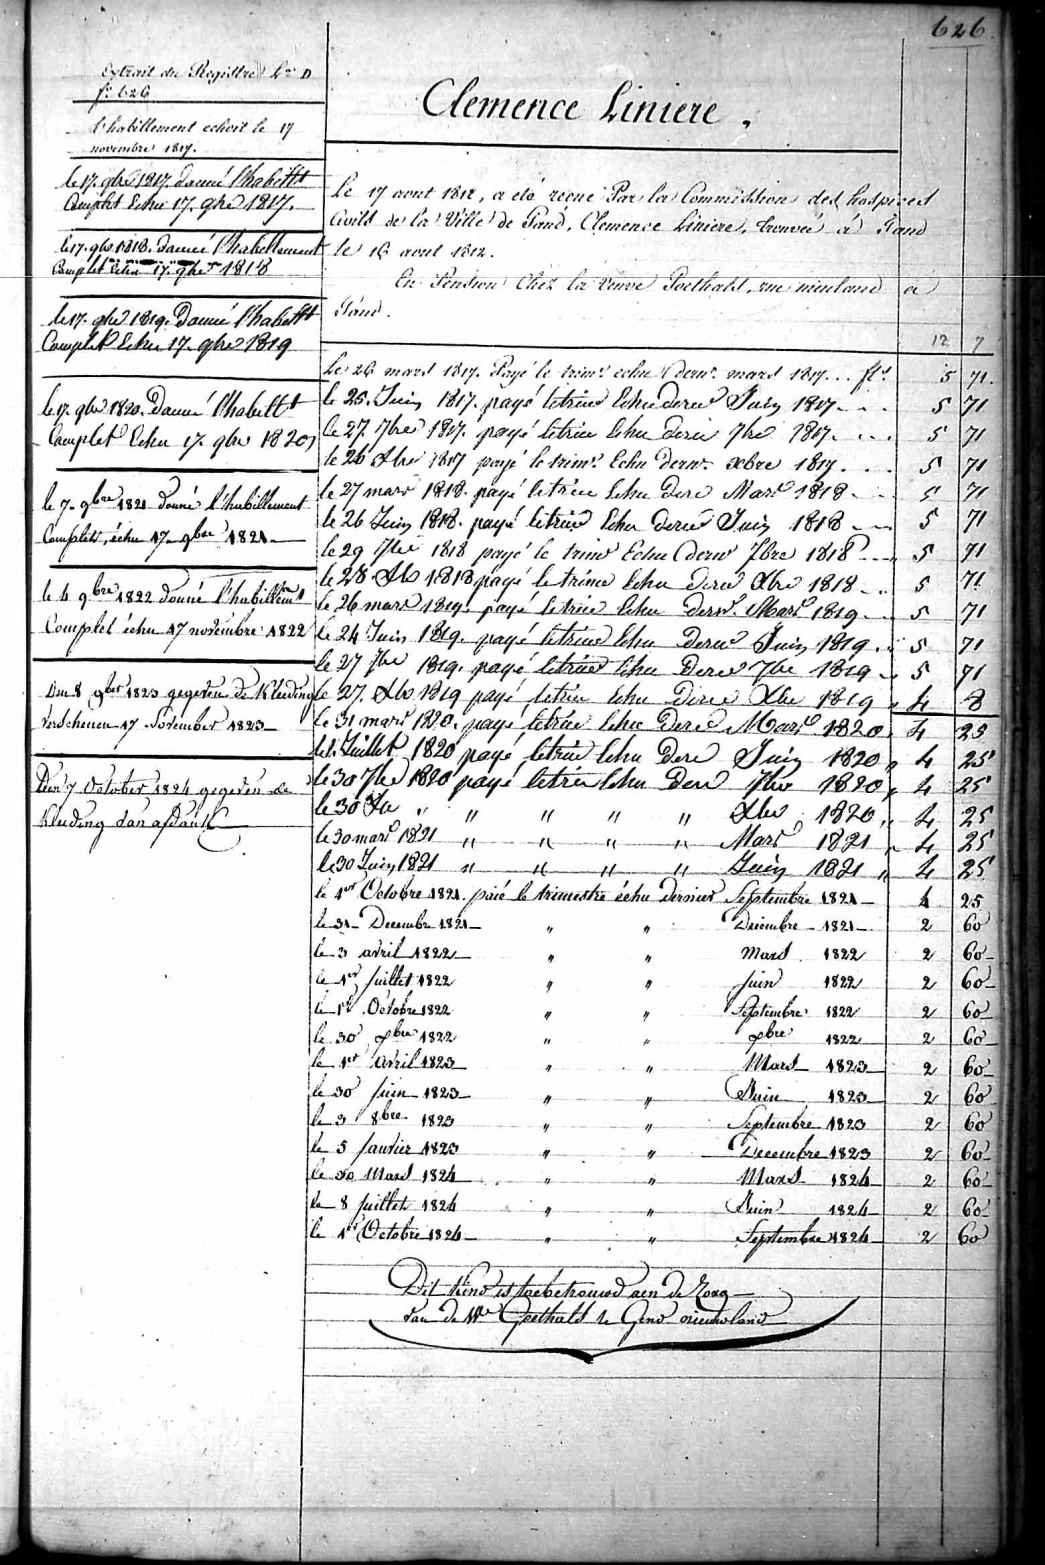 626.
Extrait du Registre Lra D
fo 626
l'habillement echoit le 17
novembre 1817.
le 17. qbre 1817. donné l'habillt
Complet Echu 17. qbre 1817.
le 17. qbre 1818. donné l'habillement
Complet Echu 17. qbre 1818
le 17. qbre 1819. Donné l'habillt
Complet Echu 17. qbre 1819
le 17. qbre 1820. Donné l'habillt
Complet Echu 17. qbre 1820
le 7. qbre 1821 donné l'habillement
Complet, échu 17. qbre 1821
le 6 qbre 1822 donné l'habillemt
Complet échu 17 novembre 1822
Den 8 qber 1823 gegeven de Kleeding
verschenen 17 November 1823
Den 7 October 1824 gegeven de
Kleeding van afdank
Clemence Liniere.
Le 17 aout 1812, a eté recue Par la Commission des hospices
Civils de la Ville de Gand, Clemence Liniere, trouvée à Gand
le 16 aout 1812.
En Pension Chez la veuve Goethals, rue nieuland a
Gand.
12 7
Le 26 mars 1817. Payé le trimr. echu dernr. mars 1817... fls 5 71.
le 25. Juin 1817. payé letrime Echu derne Juin 1817 - . . 5 71
le 27. 7bre 1817. payé letrime Echu derne 7bre 1817. . . . 5 71
le 26 Xbre 1817 payé le trimr. Echu dernr. xbre 1817. . . . 5 71
le 27 mars 1818. payé letrime Echu derne Mars 1818 - . . 5 71
le 26 Juin 1818. payé letrime Echu derne Juin 1818 - . . 5 71
le 29 7bre 1818 payé le trimr Echu dernr 7bre 1818 - . . 5 71
le 28 Xbre 1818 payé le trime Echu derne Xbre 1818 - . . 5 71
le 26 mars 1819. payé letrime Echu dernr. Mars 1819 - . 5 71
le 24 Juin 1819. payé letrime Echu derne Juin 1819 . . 5 71
le 27 7bre 1819. payé letrime Echu derne 7bre 1819 - . 5 71
le 27. Xbre 1819 payé letrime Echu derne Xbre 1819 „ 4 8
le 31 mars 1820. payé letrime Echu derne Mars 1820 „ 4 25
le 1. Juillet 1820 payé letrime Echu dere Juin 1820 „ 4 25
le 30 7bre 1820 payé letrime Echu dere 7bre 1820 „ 4 25
le 30 Xbre „ „ „ „ „ Xbre 1820 „ 4 25
le 30 mars 1821 „ „ „ „ Mars 1821 „ 4 25
le 30 Juin 1821 „ „ „ „ Juin 1821 „ 4 25
le 1er Octobre 1821. paié le trimestre échu dernier Septembre 1821 - 4 25
le 31 Decembre 1821 - „ „ Decembre - 1821 - 2 60
le 3 avril 1822 - „ „ mars 1822 2 60 -
le 1er juillet 1822 „ „ juin 1822 2 60 -
le 1r Octobre 1822 „ „ Septembre 1822 2 60 -
le 30 qbre 1822 „ „ qbre 1822 2 60 -
le 1er avril 1823 - „ „ Mars - 1823 - 2 60 -
le 30 juin 1823 - „ „ Juin 1823 - 2 60
le 3 8bre 1823 „ „ Septembre 1823 2 60
le 5 janvier 1823 „ „ Decembre 1823 2 60 -
le 30 Mars 1824 „ „ Mars - 1824 2 60 -
le 8 juillet 1824 „ „ Juin 1824 - 2 60 -
le 1r Octobre 1824 - „ „ Septembre 1824 - 2 60
Dit Kind is toebetrouwd aen de Zorg
van de We Goethals te Gend nieuwland